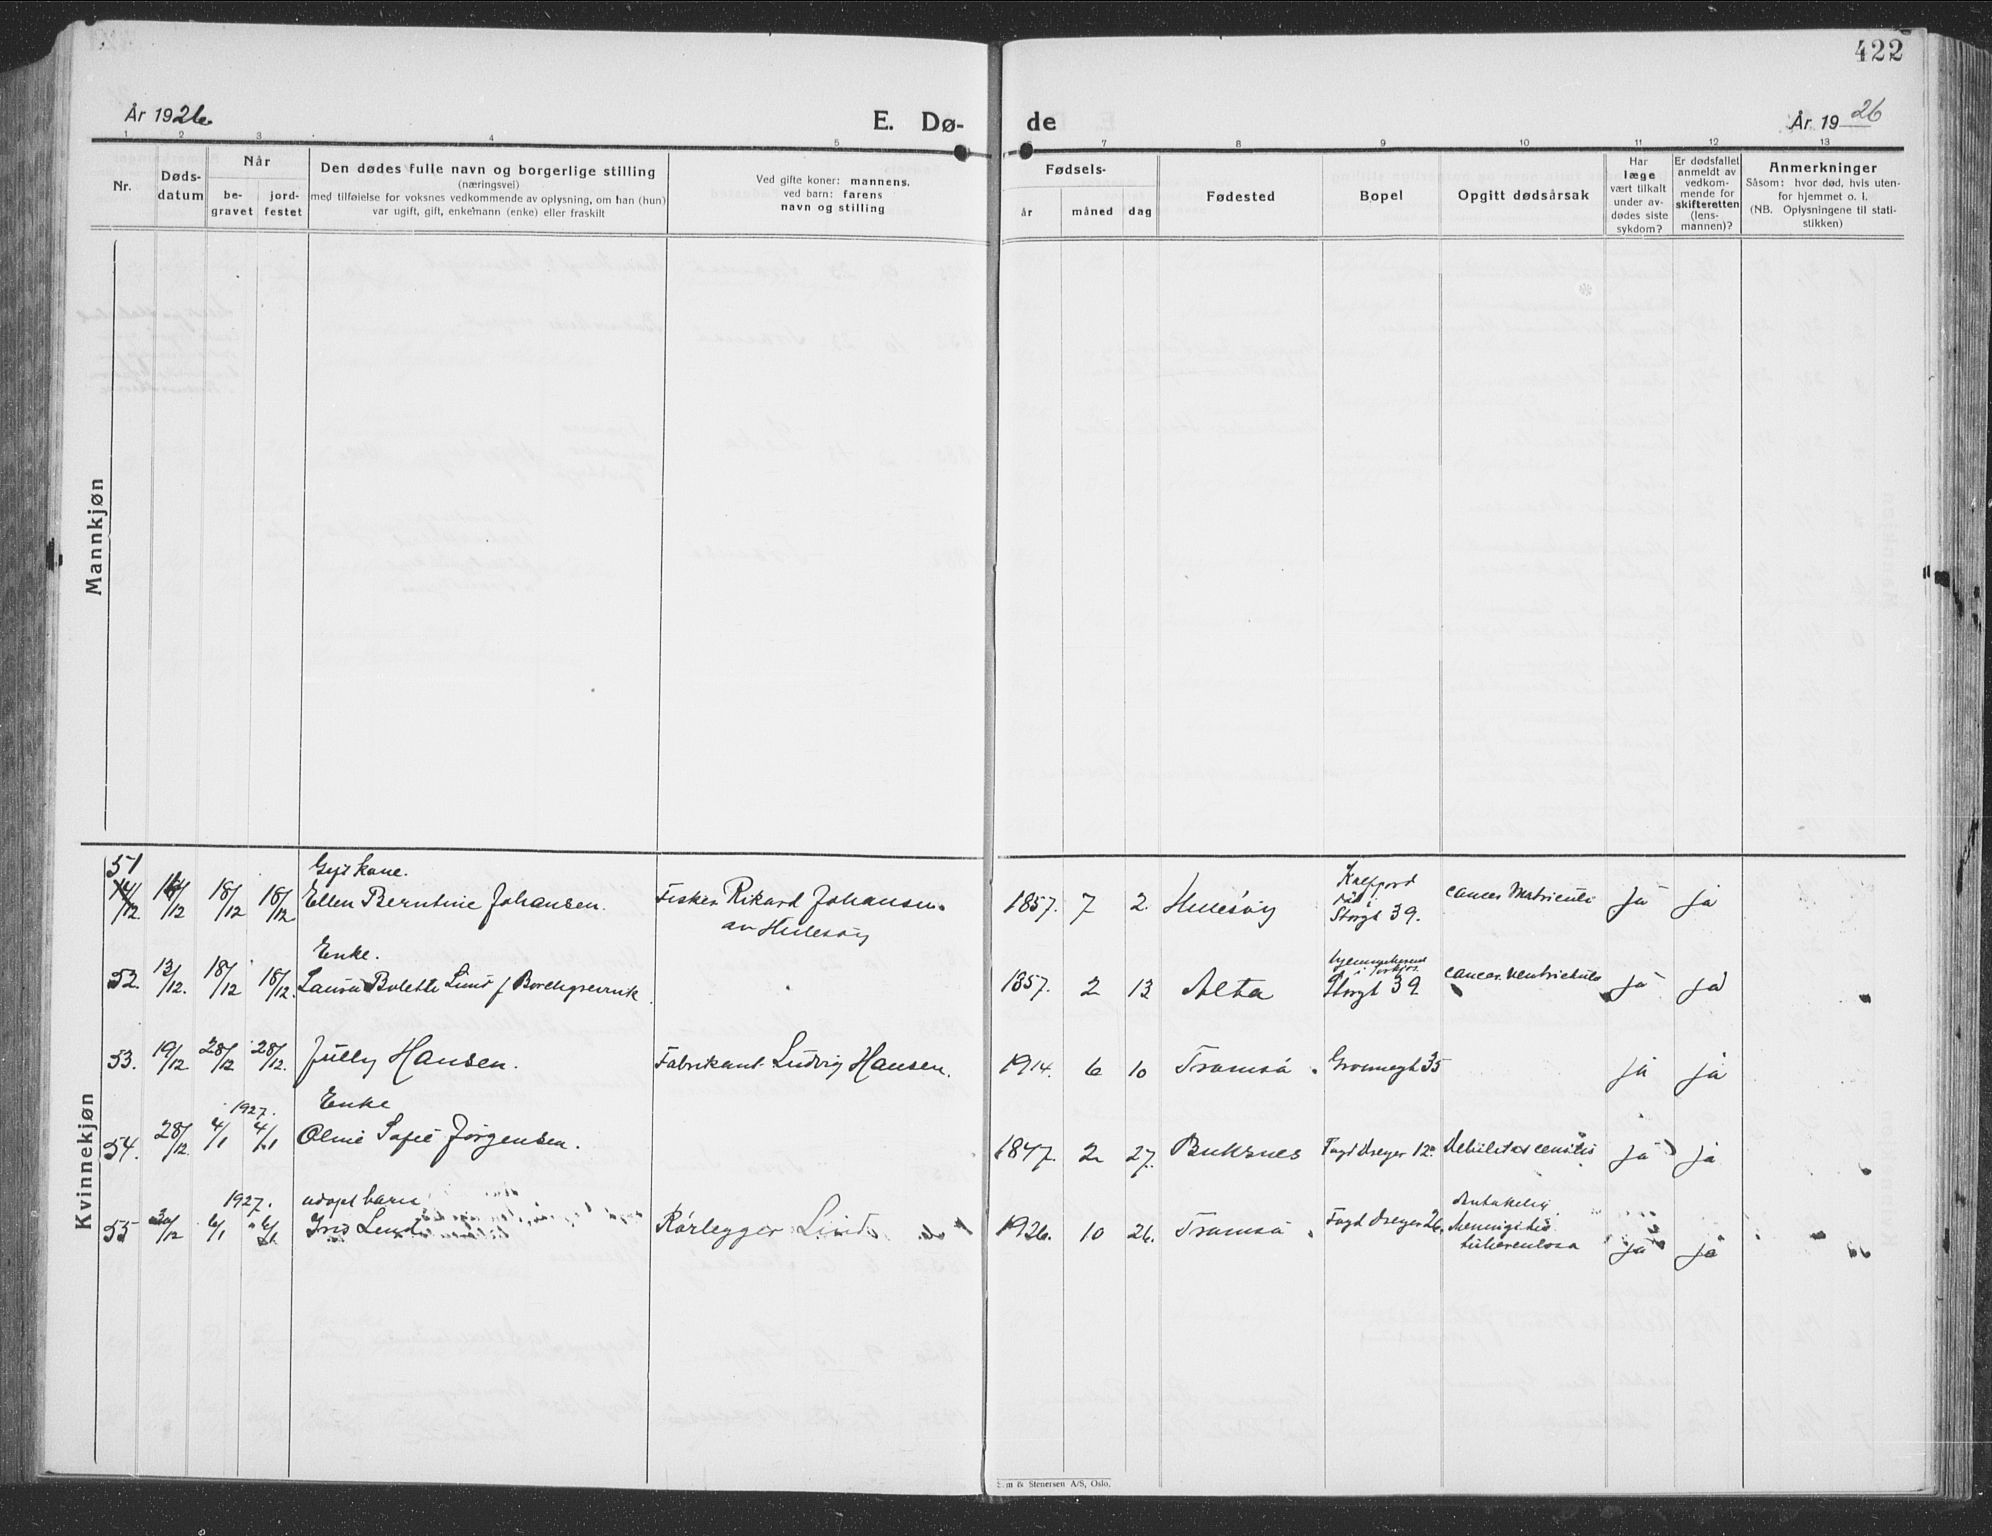 422
År 1926
E. Dø-
de
År 1926
1 2 3 4 5
7 8 9 10 11 12 13
Nr.
Døds-
datum
Når
be-
gravet
jord-
festet
Den dødes fulle navn og borgerlige stilling
(næringsvei)
med tilføielse for voksnes vedkommende av oplysning, om han (hun)
var ugift, gift, enkemann (enke) eller fraskilt
Ved gifte koner: mannens,
ved barn: farens
navn og stilling
Fødsels-
år måned dag
Fødested
Bopel
Opgitt dødsårsak
Har
læge
vært tilkalt
under av-
dødes siste
sykdom?
Er dødsfallet
anmeldt av
vedkom-
mende for
skifteretten
(lens-
mannen)?
Anmerkninger
Såsom: hvor død, hvis uten-
for hjemmet o. l.
(NB. Oplysningene til stati-
stikken)
Mannkjøn
Kvinnekjøn
51
Gift kone.
14/12 18/12 18/12 Ellen Berntine Johansen. Fisker Rikard Johansen.
av Hillesøy
1857. 7 2. Hillesøy
Kalfjord
Storgt 39.
cancer ja ja
Enke.
52. 13/12. 18/12 18/12. Laura Bolette Lund f Borchgrevink
1857. 2 13 Alta
Storgt 39
cancer ventriculi ja ja
53. 19/12 28/12 28/12. Jully Hansen. Fabrikant Ludvig Hansen. 1914. 6 10 Tromsø. Grønnegt 35 ja ja
1927. Enke
54. 28/12 4/1 4/1 Oline Sofie Jørgensen. 1847. 2 27. Buksnes Fogd Dreyer 12 Debilitas senilis ja ja
1927. adopt barn
55 30/12 6/1 6/1 Iris Lund Rørlegger Lind 1926. 10 26. Tromsø. Fogd Dreyer 26.
Meningitis
tuberculosa ja ja
& Stenersen A/S, Oslo.